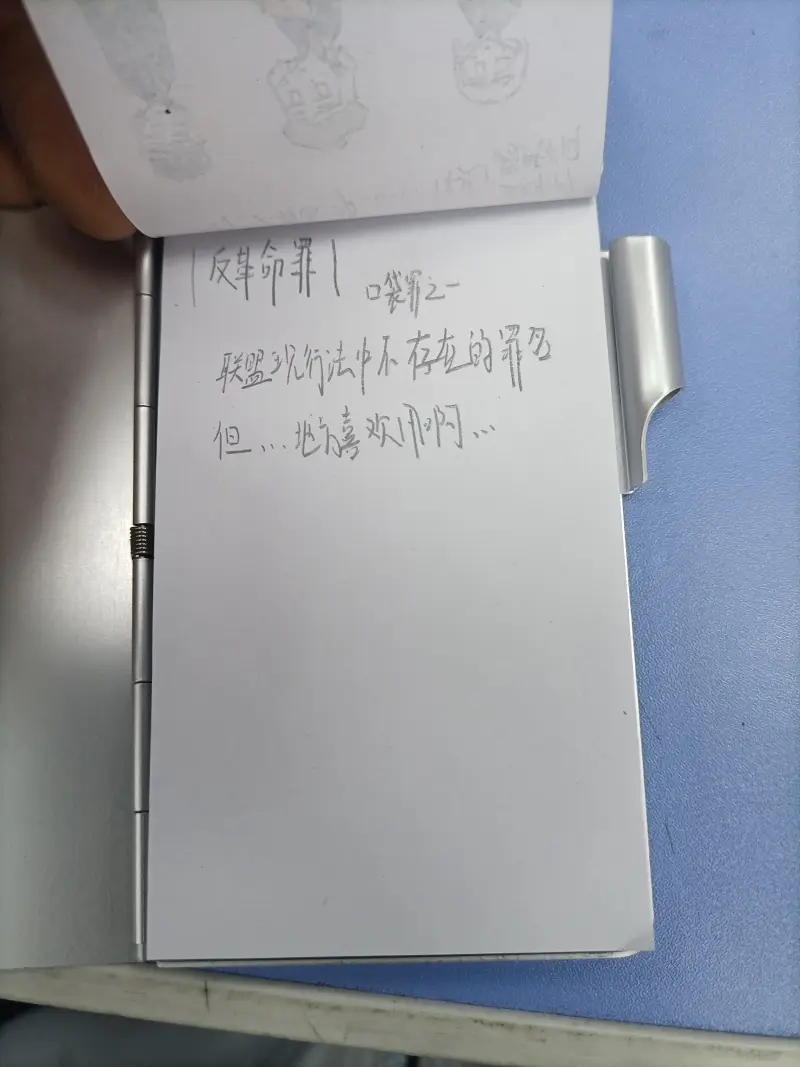 |反革命罪|
口袋罪之一
联盟现行法中不存在的罪名
但...地方喜欢用啊...